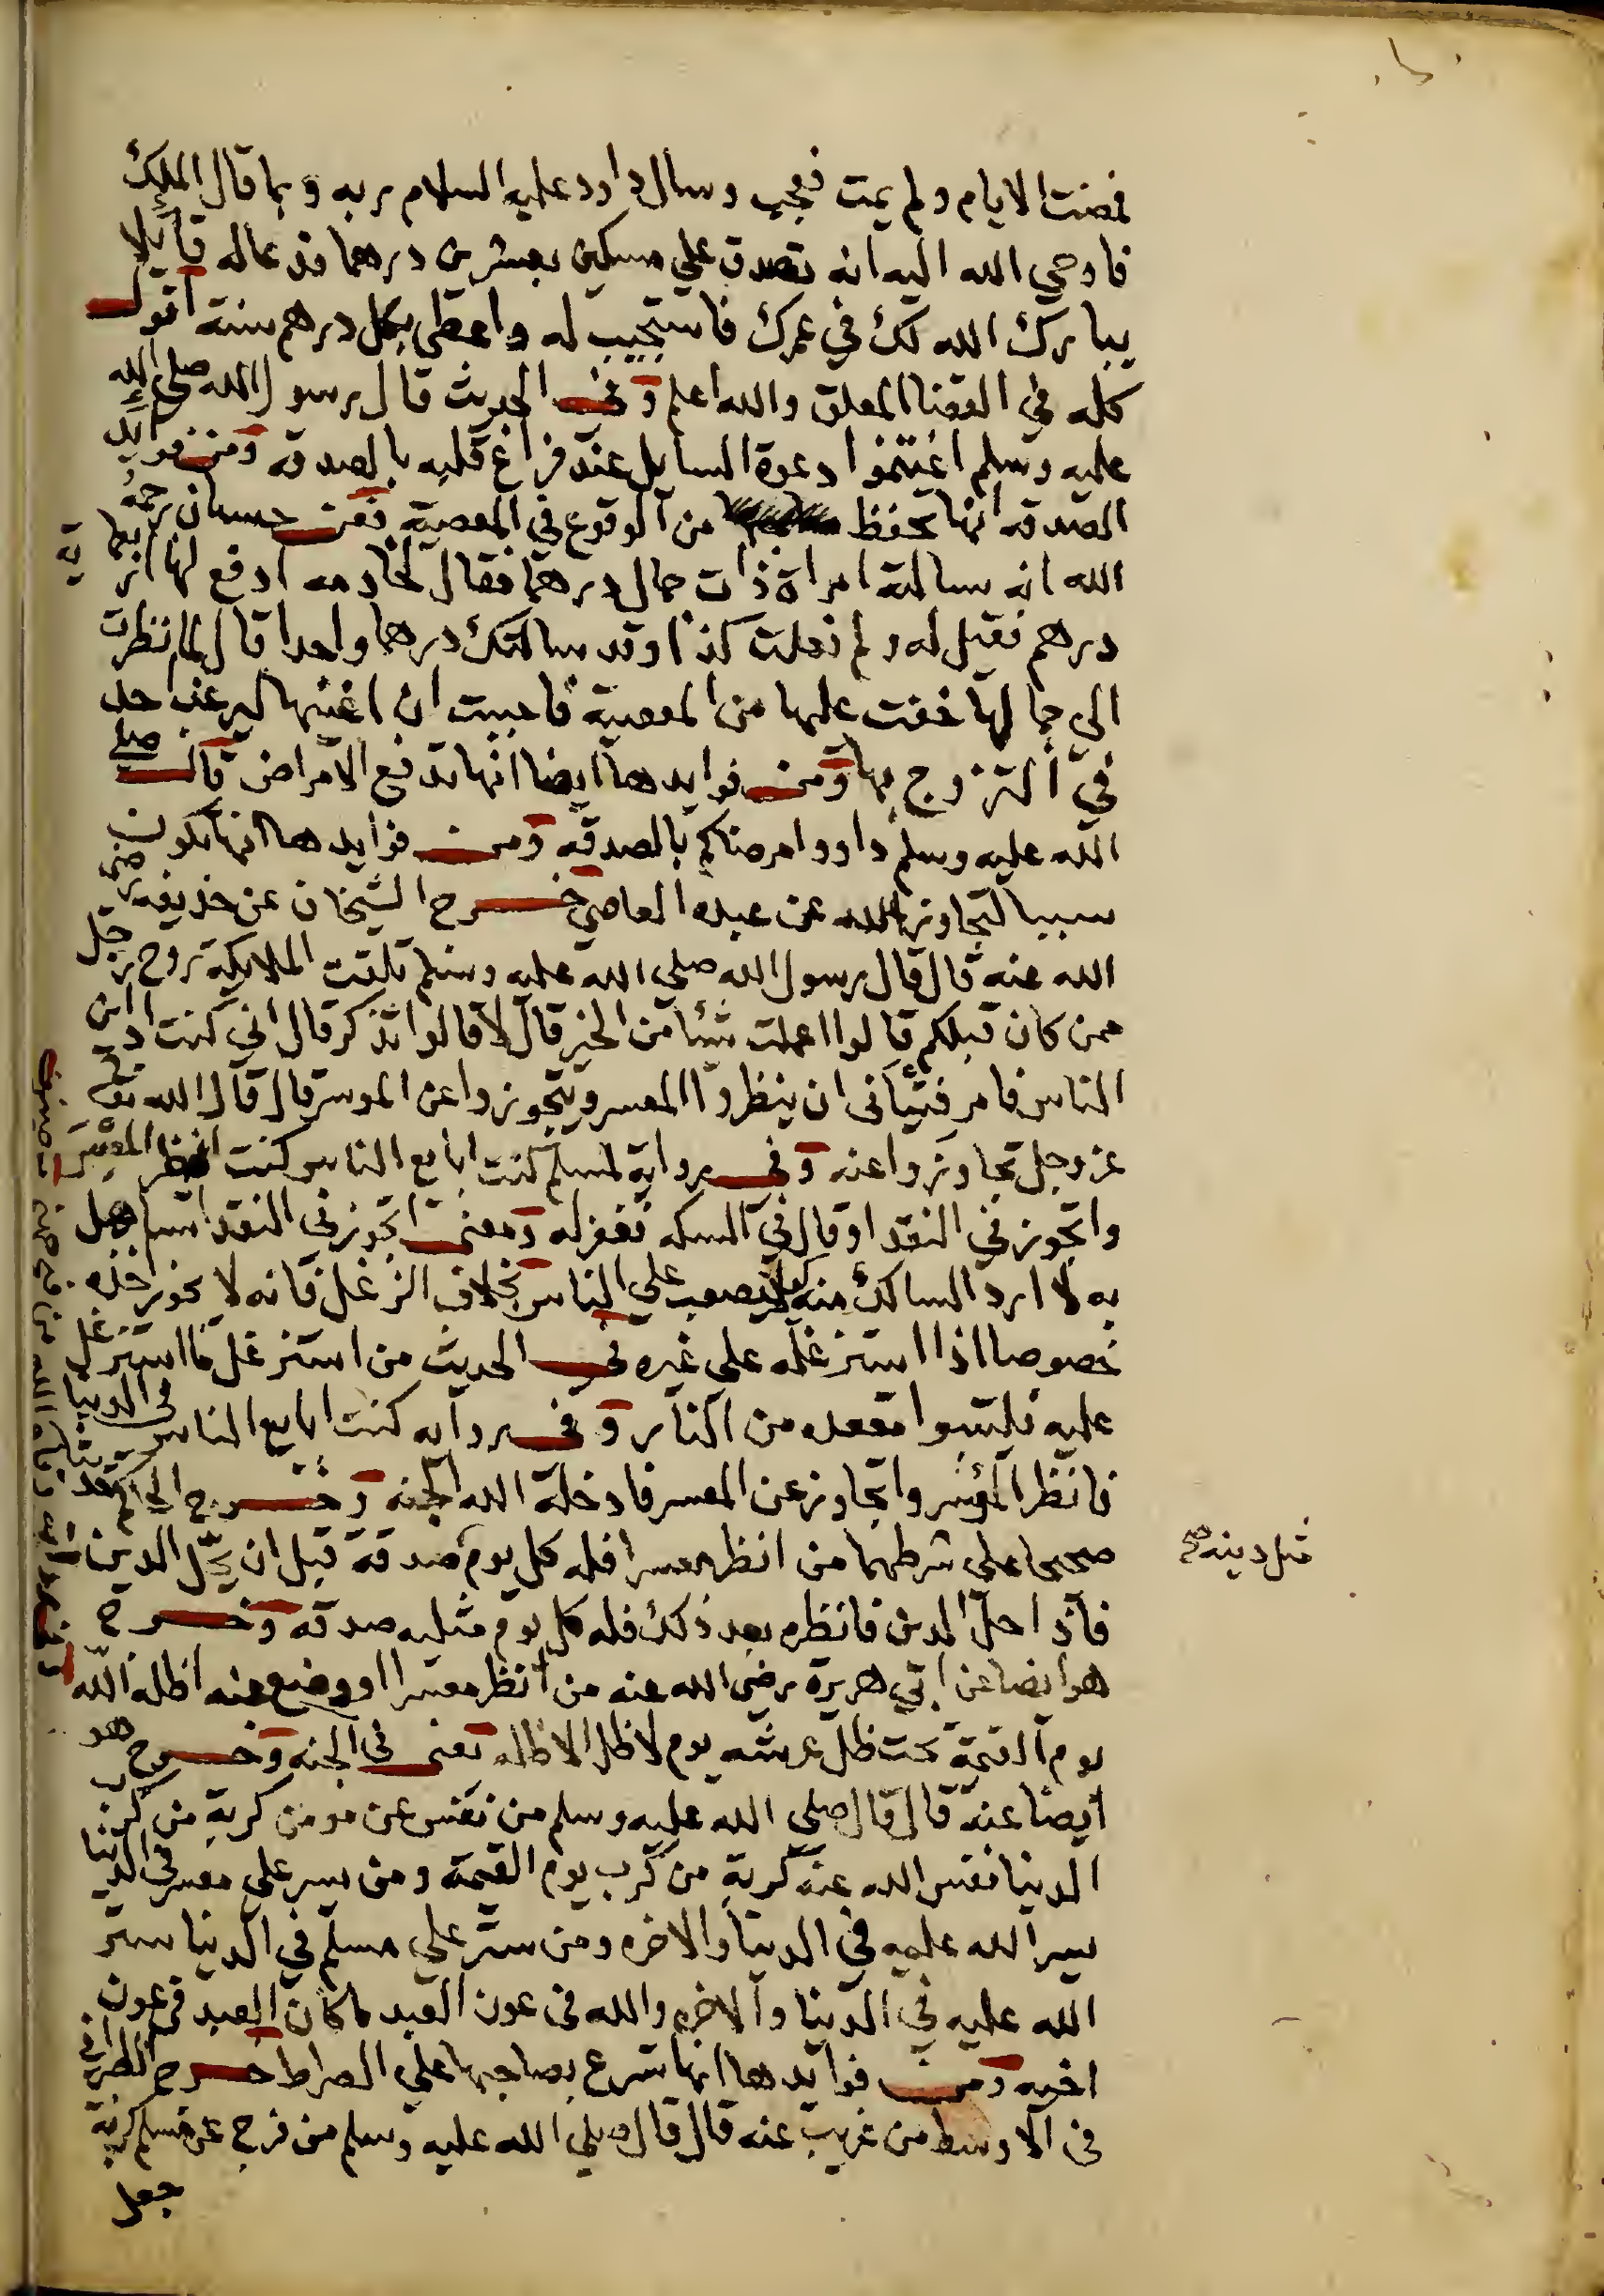 فمضت الايام ولم يمت فعجب وسال داود عليه السلام ربه وبما قال الملك
فاوحي الله اليه انه تصدق علي مسكين بعشرين درهما فدعاله قايلا
يبارك الله لك في عمرك فاستجيب له واعطي بكل درهم سنة اقول
كله في القضا المعلق والله اعلم وفي الحديث قال رسول الله صلي الله
عليه وسلم اغتنموا دعوة السايل عند فراغ قلبه بالصدقه ومن فوايد
الصدقه انها تحفظ من الوقوع في المعصية فعن حسان رحمه
الله انه سالته امراة ذات جمال درهما فقال لخادمه ادفع لها اربعماية
درهم فقيل له ولم فعلت كذا وقد سالتك درهما واحدا قال لما نظرت
الي جمالها خفت عليها من المعصية فاحببت ان اغنيها ليرغب احد
في التزوج بها ومن فوايدها ايضا انها تدفع الامراض قال صلي
الله عليه وسلم داووا مرضاكم بالصدقه ومن فوايدها انها تكون
سببا لتجاوز الله عن عبده العاصي خرج الشيخان عن حذيفه رضي
الله عنه قال قال رسول الله صلي الله عليه وسلم تلقت الملايكة روح رجل
ممن كان قبلكم قالوا اعملت شيئا من الخير قال لا قالوا تذكر قال اني كنت اداين
الناس فامر فتياني ان ينظروا المعسر ويتجوزوا عن الموسر قال قال الله
عز وجل تجاوزوا عنه وفي رواية لمسلم كنت ابايع الناس كنت انظر المعسر
واتجوز في النقد او قال في السكه فغفر له ومعني اتجوز في النقد اتساهل
به لا ارد الساكك منه ليلا يصعب علي الناس بخلاف الزغل فانه لا يجوز حذه
خصوصا اذا استزغله علي غيره في الحديث من استزغل ما استزغل
عليه فليتبوا مقعده من النار وفي رواية كنت ابايع الناس في الدنيا
فانظر المؤسر واتجاوز عن المعسر فادخله الله الجنه وخرج الحاكم
صحيحا علي شرطهما من انظر معسرا فله كل يوم صدقة قبل ان يحل الدين
مثل دينه صح
فاذا حل الدين فانظره بعد ذلك فله كل يوم مثليه صدقه وخرج
هو ايضا عن ابي هريرة رضي الله عنه من انظر معسرا او وضع عنه اظله الله
يوم القيمة تحت ظل عرشه يوم لا ظل الا ظله يعني في الجنه وخرج هو
ايضا عنه قال قال صلي الله عليه وسلم من نفس عن مومن كربة من كرب
الدنيا نفس الله عنه كربة من كرب يوم القيمة ومن يسر علي معسر في الدنيا
يسر الله عليه في الدنيا والاخره ومن ستر علي مسلم في الدنيا ستر
الله عليه في الدنيا والاخره والله في عون العبد ما كان العبد في عون
اخيه ومن فوايدها انها تسرع بصاحبها علي الصراط خرج الطبراني
في الاوسط من غريب عنه قال قال صلي الله عليه وسلم من فرج عن مسلم كربة
جعل